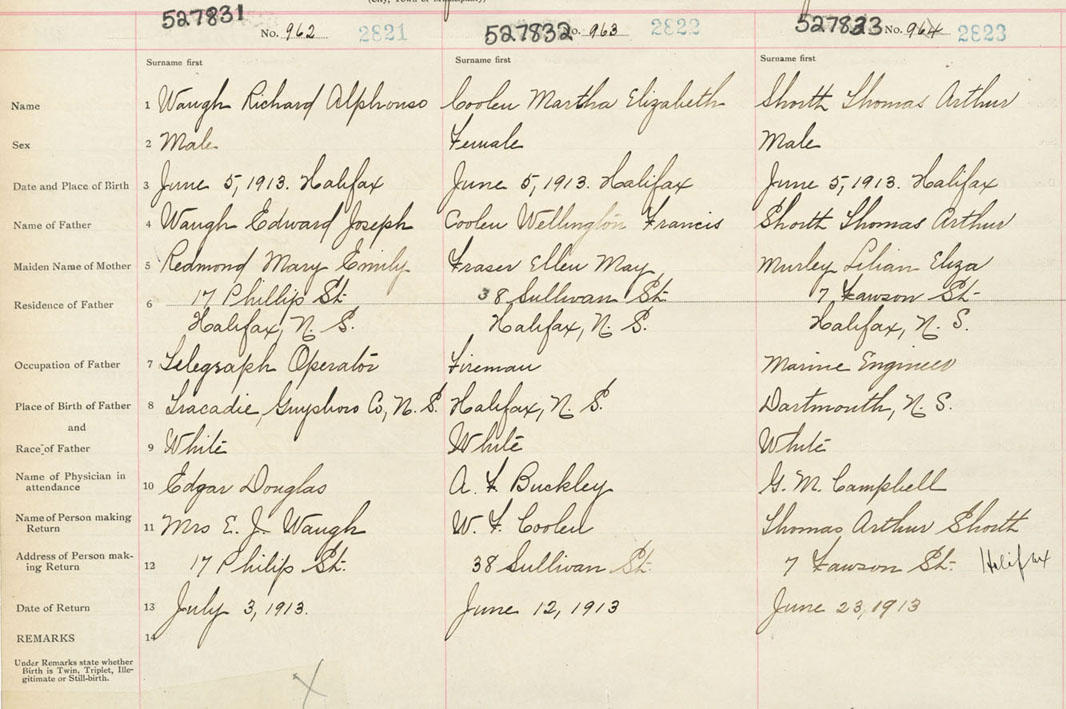 (City, Town or Municipality)
527831 No. 962 2821 527832 No. 963 2822 527833 No. 964 2823
Surname first Surname first Surname first
Name 1 Waugh Richard Alphonso Coolen Martha Elizabeth Shorth Thomas Arthur
Sex 2 Male Female Male
Date and Place of Birth 3 June 5, 1913. Halifax June 5, 1913. Halifax June 5, 1913. Halifax
Name of Father 4 Waugh Edward Joseph Coolen Wellington Francis Shorth Thomas Arthur
Maiden Name of Mother 5 Redmond Mary Emily Fraser Ellen May Murley Lilian Eliza
Residence of Father 6 17 Phillip St. 38 Sullivan St. 7 Fawson St.
Halifax, N. S. Halifax, N. S. Halifax, N. S.
Occupation of Father 7 Telegraph Operator Fireman Marine Engineer
Place of Birth of Father 8 Tracadie, Guysboro Co, N. S. Halifax, N. S. Dartmouth, N. S.
and
Race of Father 9 White White White
Name of Physician in
attendance 10 Edgar Douglas A. F. Buckley G. M. Campbell
Name of Person making
Return 11 Mrs E. J. Waugh W. F. Coolen Thomas Arthur Shorth
Address of Person mak-
ing Return 12 17 Philip St. 38 Sullivan St. 7 Fawson St. Halifax
Date of Return 13 July 3, 1913. June 12, 1913 June 23, 1913
REMARKS 14
Under Remarks state whether
Birth is Twin, Triplet, Ille-
gitimate or Still-birth.
X